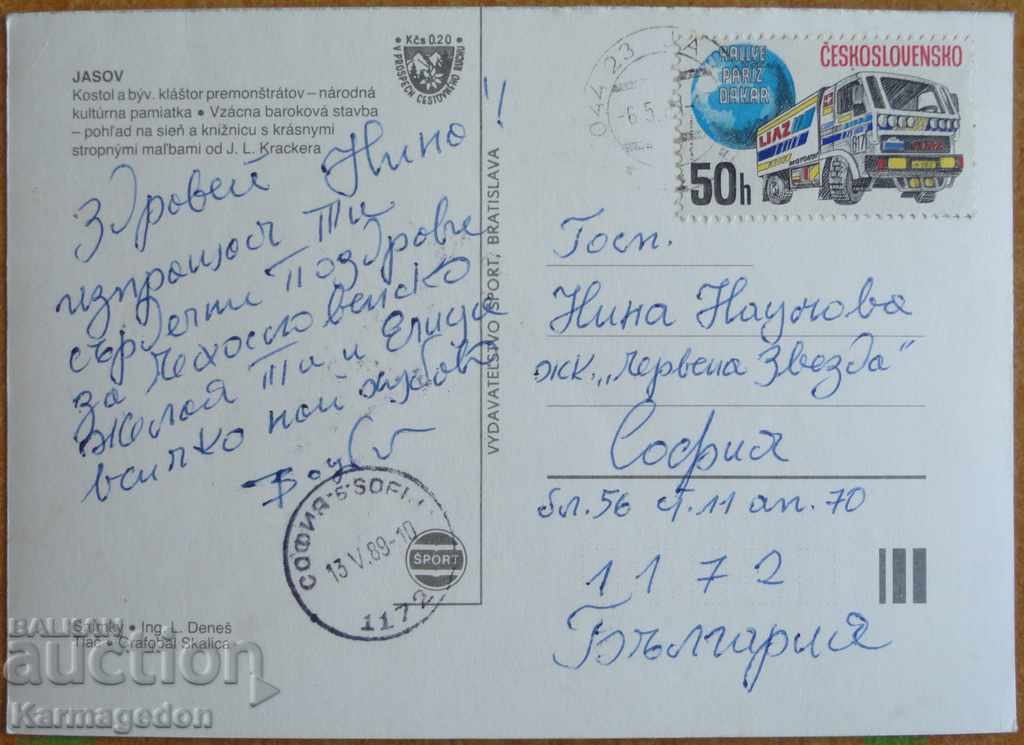 JASOV
Kostol a býv. kláštor premonštrátov – národná
kultúrna pamiatka • Vzácna baroková stavba
– pohľad na sieň a knižnicu s krásnymi
stropnými maľbami od J. L. Krackera
• Kčs 0.20 •
V PROSPECH CESTOVNÉHO RUCHU
Здравей Нина!
изпращам Ти
сърдечни Поздрави
за Чехословенско
желая Ти и
всичко най хубаво
VYDAVATEĽSTVO ŠPORT, BRATISLAVA
044 23
-6.5.
RALLYE
PAŘÍŽ
DAKAR
ČESKOSLOVENSKO
LIAZ
817
50h
Госп.
Нина Наумова
жк. „Червена Звезда"
София
бл. 56 ст. 11 ап. 70
1172
България
СОФИЯ-5 SOFI
13.V.89-10
1172
ŠPORT
Snímky • Ing. L. Deneš
Tlač • Grafobal Skalica
BALKAN
auction
Karmagedon